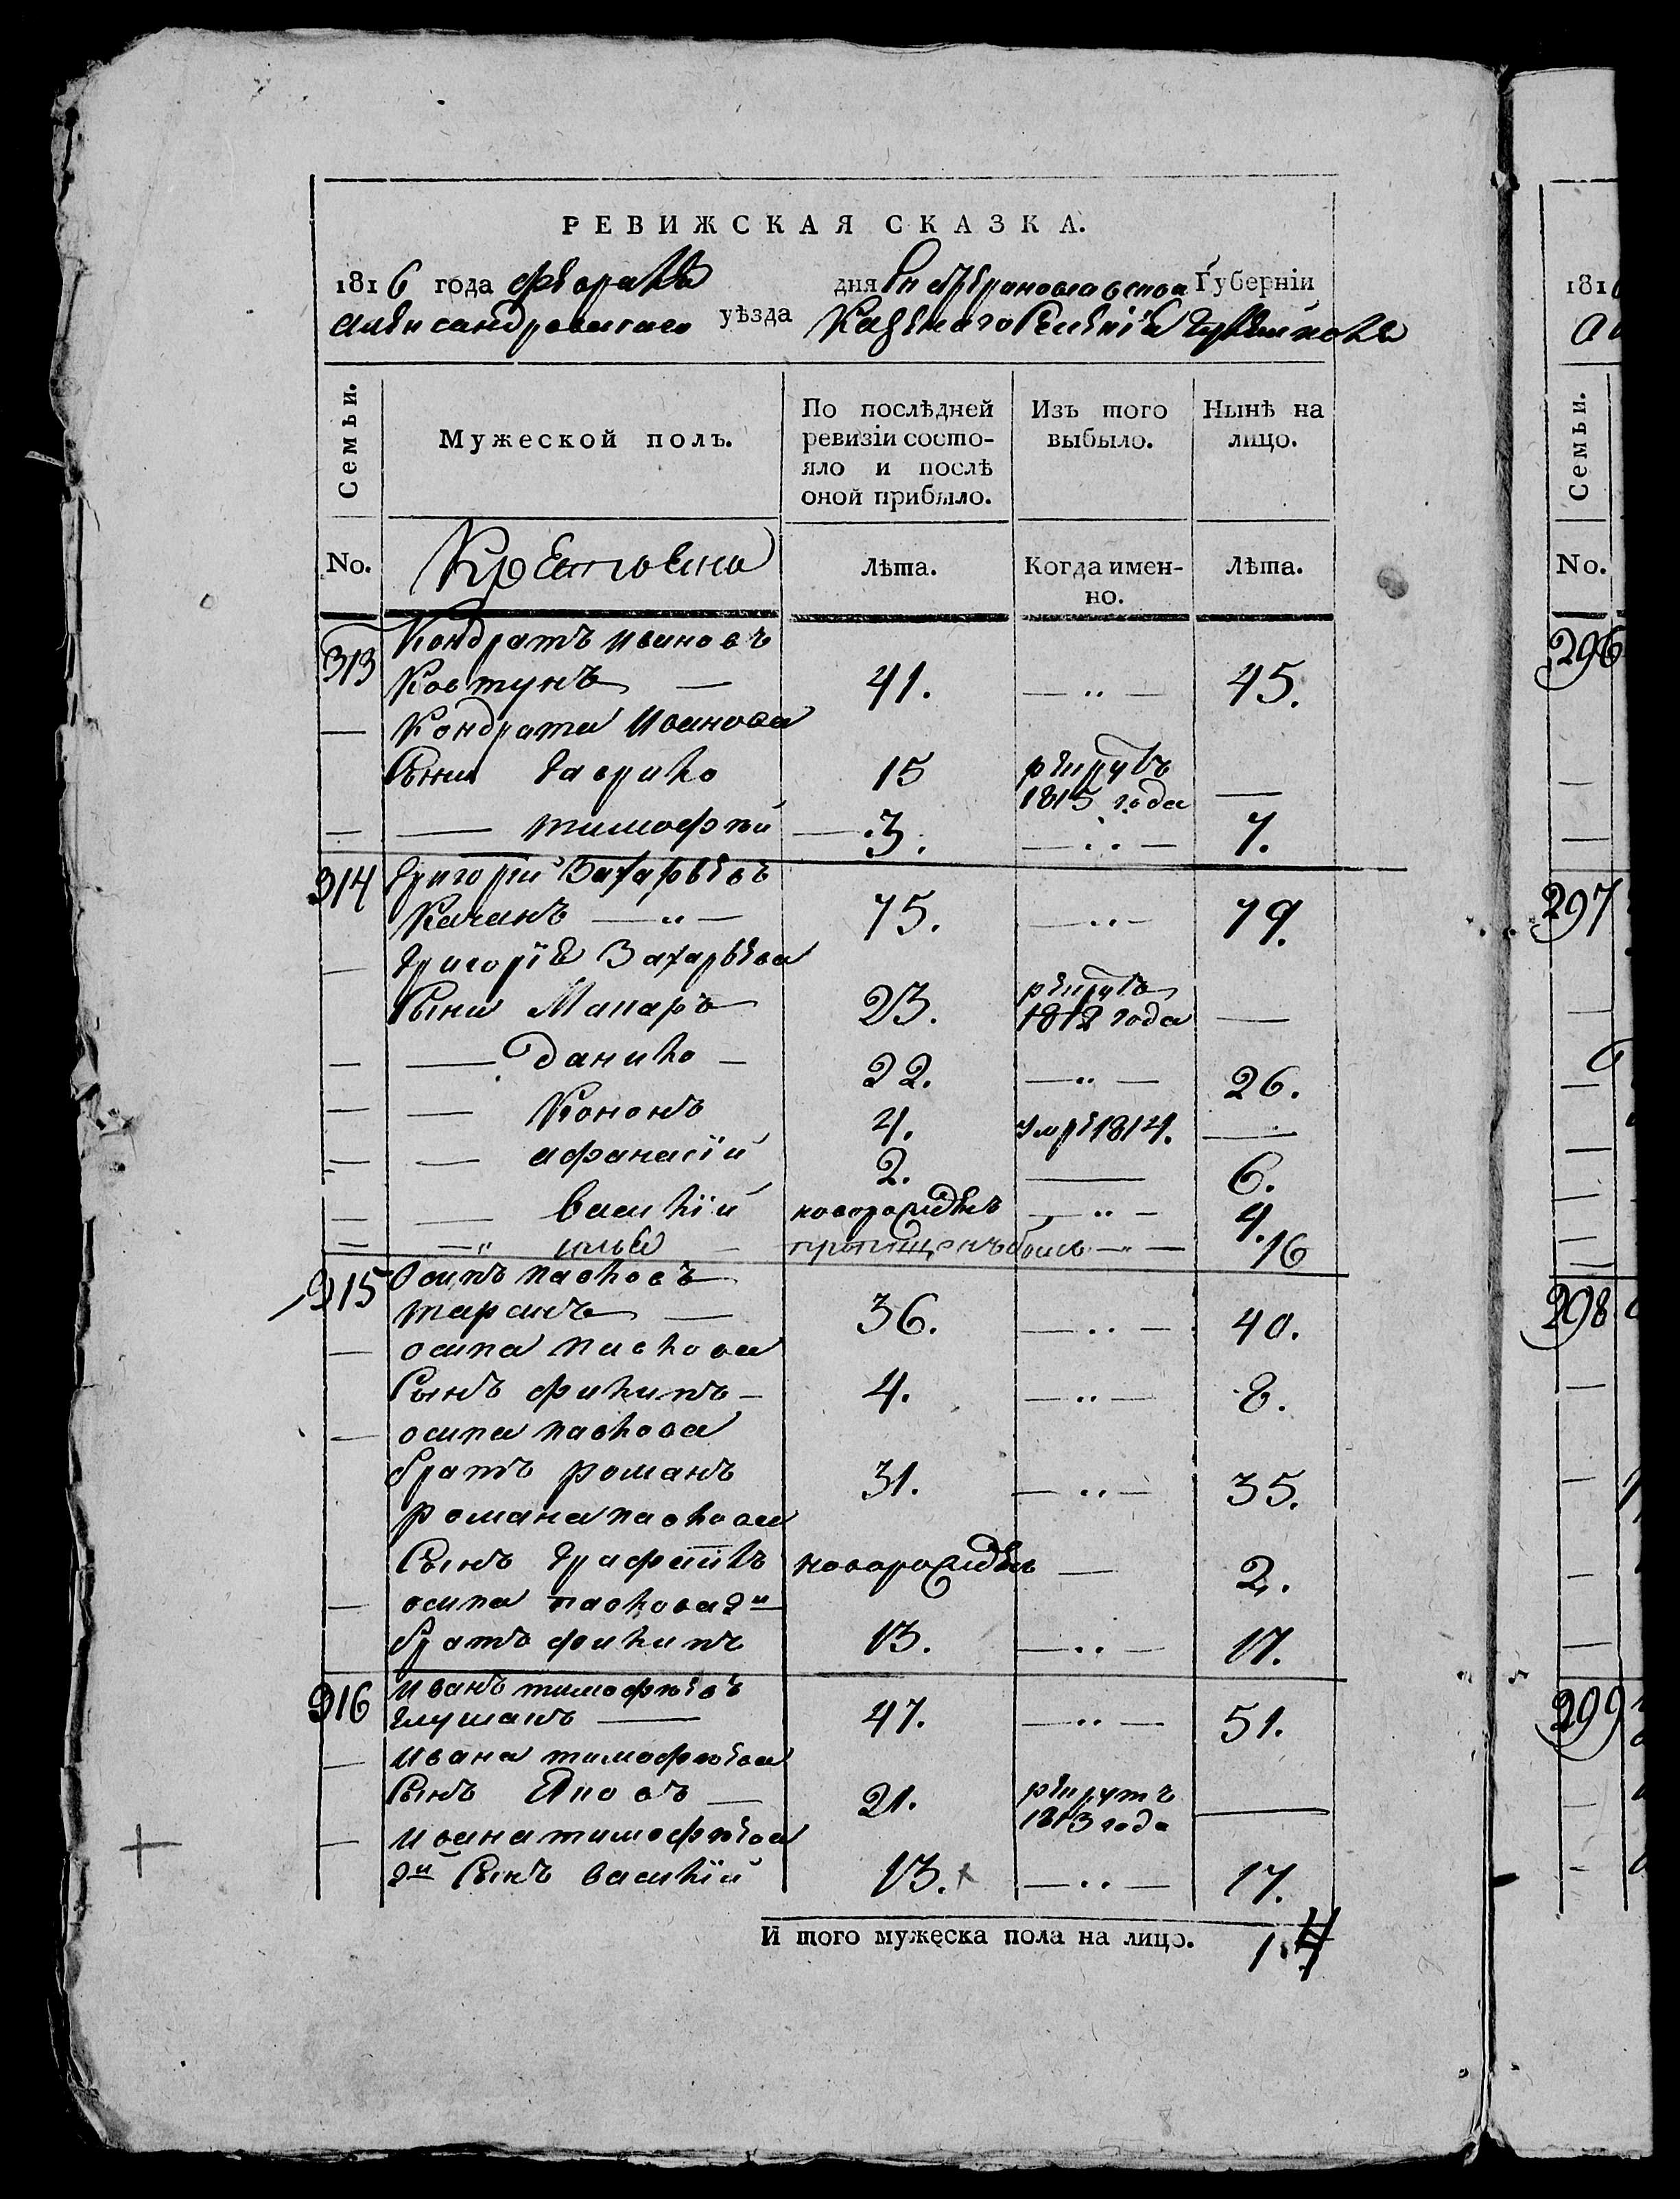 РЕВИЖСКАЯ СКАЗКА.
1816 года февраля дня Екатеринославской Губерніи
Александровскаго уѣзда Казеннаго Селенія
Семьи. Мужеской полъ. По послѣдней ревизіи состо- Изъ того выбыло. Нынѣ на лицо.
яло и послѣ оной прибыло.
No. Крестьяне Лѣта. Когда имен- Лѣта.
но.
313 Кондратъ Ивановъ
Ковтунъ — 41. — .. — 45.
— Кондрата Иванова
Сыни Гаврило 15 рекрутъ
1815 года —
— — Тимофѣй — 3. — .. — 7.
314 Григорій Захарьевъ
Качанъ — .. — 75. — .. — 79.
— Григорія Захарьева
Сыни Макаръ 23. рекрутъ
1812 года —
— — Данило — 22. — .. — 26.
— — Кононъ 4. умре 1814. —
— — Афанасій 2. — 6.
— — Василій новорожденъ — .. — 4.
— — " Илья — пропищенъ былъ — " — 16
315 Осипъ Павловъ
Таранъ — 36. — .. — 40.
— Осипа Павлова
Сынъ Филипъ — 4. — .. — 8.
— Осипа Павлова
братъ Романъ 31. — .. — 35.
Романа Павлова
Сынъ новорожденъ — 2.
— Осипа Павлова 2й
братъ Филипъ 13. — .. — 17.
316 Иванъ Тимофѣевъ
Глушакъ — 47. — .. — 51.
— Ивана Тимофѣева
Сынъ Яковъ — 21. рекрутъ
1813 года —
— Ивана Тимофѣева
2й Сынъ Василій 13. — .. — 17.
И того мужеска пола на лицо. 14
181
Семьи.
No.
296
297
298
299